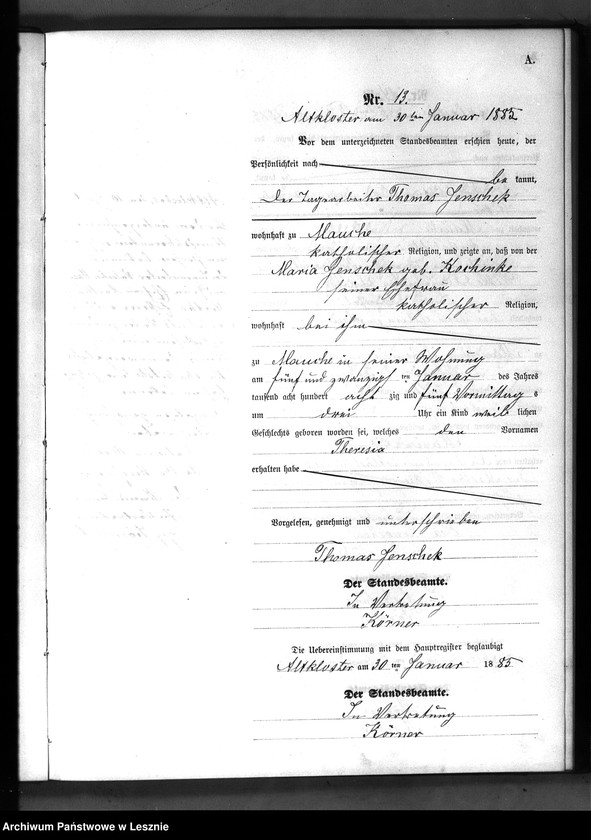 A.
Nr. 13.
Altkloster am 30ten Januar 1885
Vor dem unterzeichneten Standesbeamten erschien heute, der
Persönlichkeit nach
be kannt,
der Tagearbeiter Thomas Jenschek
wohnhaft zu Mauche
katholischer Religion, und zeigte an, daß von der
Maria Jenschek geb. Kochinke
seiner Ehefrau
katholischer Religion,
wohnhaft bei ihm
zu Mauche in seiner Wohnung
am fünf und zwanzigsten Januar des Jahres
tausend acht hundert acht zig und fünf Vormittag s
um drei Uhr ein Kind weib lichen
Geschlechts geboren worden sei, welches den Vornamen
Theresia
erhalten habe
Vorgelesen, genehmigt und unterschrieben
Thomas Jenschek
Der Standesbeamte.
In Vertretung
Körner
Die Uebereinstimmung mit dem Hauptregister beglaubigt
Altkloster am 30 ten Januar 1885
Der Standesbeamte.
In Vertretung
Körner
Archiwum Państwowe w Lesznie